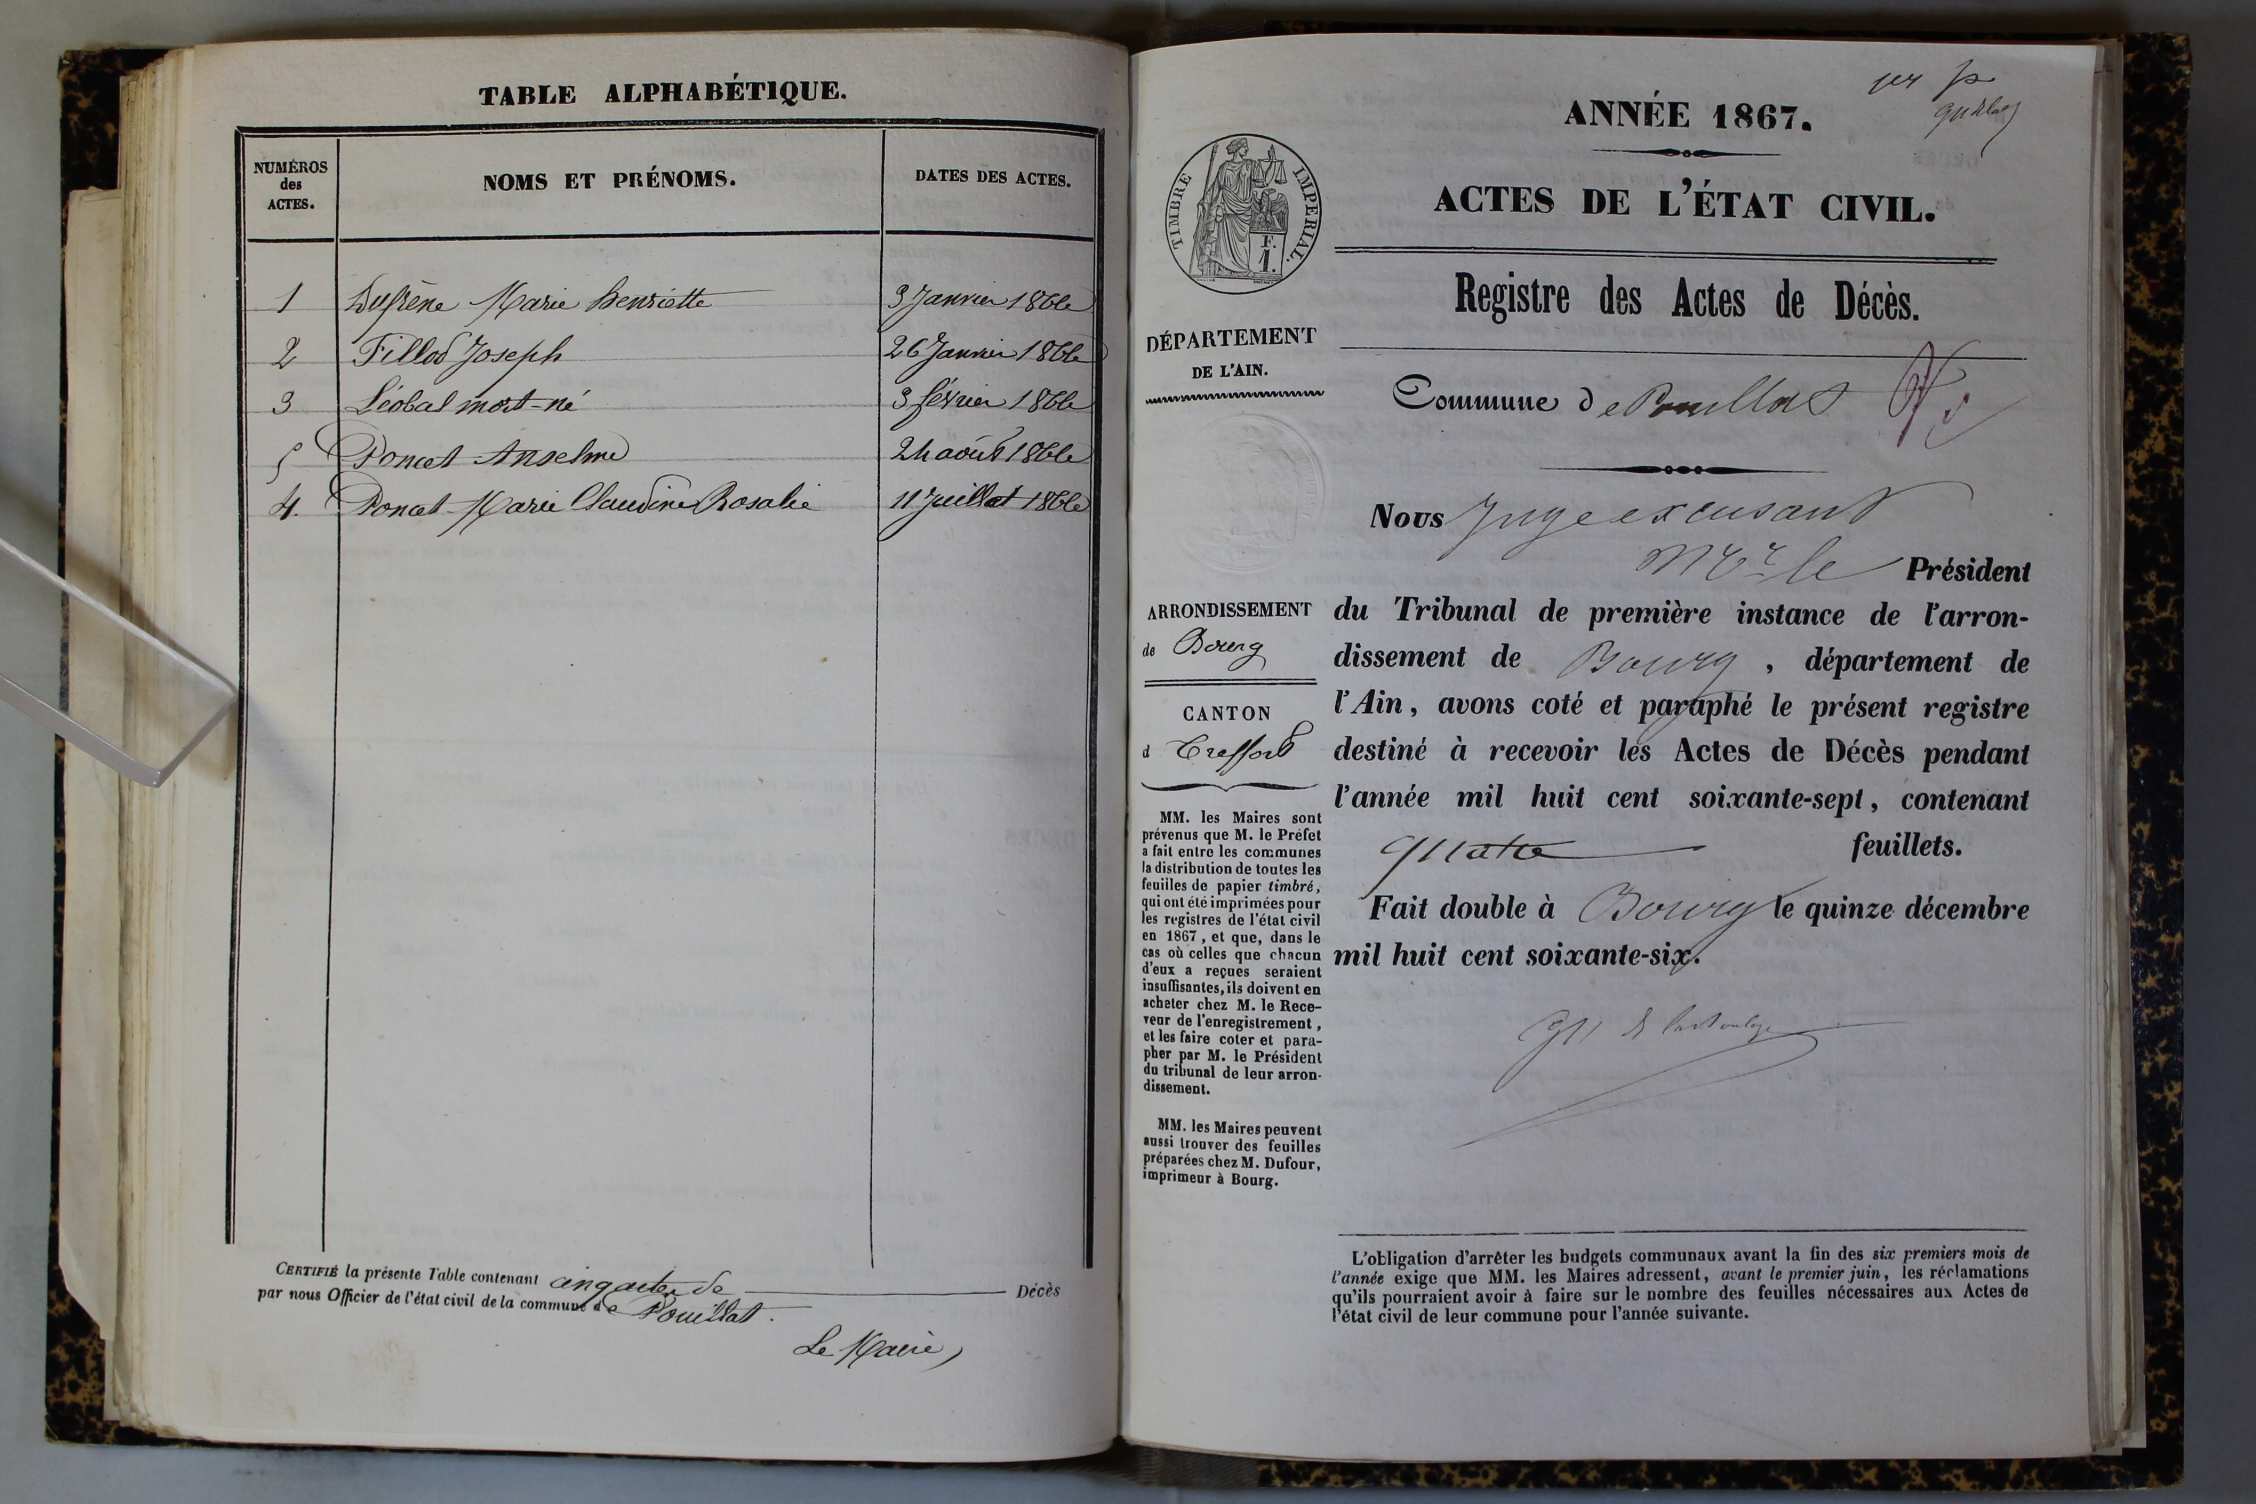 TABLE ALPHABÉTIQUE.
NUMÉROS
des
ACTES.
NOMS ET PRÉNOMS.
DATES DES ACTES.
1 Dufrène Marie henriette 3 Janvier 1866
2 Fillod Joseph 26 Janvier 1866
3 Léobal mort-né 3 février 1866
5 Poncet Anselme 24 août 1866
4. Poncet Marie Claudine Rosalie 11 Juillet 1866
CERTIFIÉ la présente Table contenant cinq actes de Décès
par nous Officier de l'état civil de la commune de Pouillat.
Le Maire,
ANNÉE 1867.
ACTES DE L'ÉTAT CIVIL.
Registre des Actes de Décès.
TIMBRE IMPÉRIAL.
F.
1.
DÉPARTEMENT
DE L'AIN.
ARRONDISSEMENT
de Bourg
CANTON
d Treffort
MM. les Maires sont
prévenus que M. le Préfet
a fait entre les communes
la distribution de toutes les
feuilles de papier timbré,
qui ont été imprimées pour
les registres de l'état civil
en 1867, et que, dans le
cas où celles que chacun
d'eux a reçues seraient
insuffisantes, ils doivent en
acheter chez M. le Rece-
veur de l'enregistrement,
et les faire coter et para-
pher par M. le Président
du tribunal de leur arron-
dissement.
MM. les Maires peuvent
aussi trouver des feuilles
préparées chez M. Dufour,
imprimeur à Bourg.
Commune de Pouillat
Nous Juge excusant
Mr le Président
du Tribunal de première instance de l'arron-
dissement de Bourg, département de
l'Ain, avons coté et paraphé le présent registre
destiné à recevoir les Actes de Décès pendant
l'année mil huit cent soixante-sept, contenant
quatre feuillets.
Fait double à Bourg le quinze décembre
mil huit cent soixante-six.
L'obligation d'arrêter les budgets communaux avant la fin des six premiers mois de
l'année exige que MM. les Maires adressent, avant le premier juin, les réclamations
qu'ils pourraient avoir à faire sur le nombre des feuilles nécessaires aux Actes de
l'état civil de leur commune pour l'année suivante.